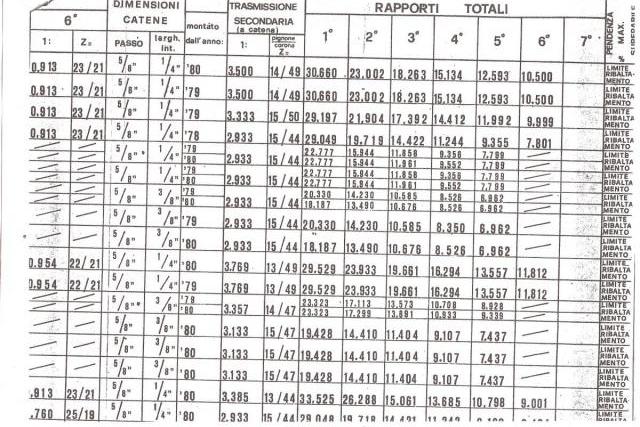 DIMENSIONI CATENE montato dall'anno: TRASMISSIONE SECONDARIA (a catena) RAPPORTI TOTALI PENDENZA MAX. %
6° PASSO largh. int. 1: pignone corona Z= 1° 2° 3° 4° 5° 6° 7°
1: Z=
0.913 23/21 5/8" 1/4" '80 3.500 14/49 30.660 23.002 18.263 15.134 12.593 10.500 LIMITE RIBALTAMENTO
0.913 23/21 5/8" 1/4" '79 3.500 14/49 30.660 23.002 18.263 15.134 12.593 10.500 LIMITE RIBALTAMENTO
0.913 23/21 5/8" 1/4" '79 3.333 15/50 29.197 21.904 17.392 14.412 11.992 9.999 LIMITE RIBALTAMENTO
0.913 23/21 5/8" 1/4" '78 2.933 15/44 29.049 19.719 14.422 11.244 9.355 7.801 LIMITE RIBALTAMENTO
5/8" 1/4" '79 2.933 15/44 22.777 15.944 11.858 9.356 7.799 LIMITE RIBALTAMENTO
'80 22.777 15.944 11.961 9.552 7.799
5/8" 1/4" '79 2.933 15/44 22.777 15.944 11.858 9.356 7.799 LIMITE RIBALTAMENTO
'80 22.777 15.944 11.961 9.552 7.799
5/8" 3/8" '79 2.933 15/44 20.330 14.230 10.585 8.526 6.962 LIMITE RIBALTAMENTO
'80 18.187 13.490 10.676 8.526 6.962
5/8" 3/8" '79 2.933 15/44 20.330 14.230 10.585 8.350 6.962 LIMITE RIBALTAMENTO
5/8" 3/8" '80 2.933 15/44 18.187 13.490 10.676 8.526 6.962 LIMITE RIBALTAMENTO
0.954 22/21 5/8" 1/4" '80 3.769 13/49 29.529 23.933 19.661 16.294 13.557 11.812 LIMITE RIBALTAMENTO
0.954 22/21 5/8" 1/4" '79 3.769 13/49 29.529 23.933 19.661 16.294 13.557 11.812 LIMITE RIBALTAMENTO
5/8" 3/8" '79 3.357 14/47 23.323 17.113 13.573 10.708 8.928 LIMITE RIBALTAMENTO
'80 23.323 17.299 13.891 10.933 9.339
5/8" 3/8" '80 3.133 15/47 19.428 14.410 11.404 9.107 7.437 LIMITE RIBALTAMENTO
5/8" 3/8" '80 3.133 15/47 19.428 14.410 11.404 9.107 7.437 LIMITE RIBALTAMENTO
5/8" 3/8" '80 3.133 15/47 19.428 14.410 11.404 9.107 7.437 LIMITE RIBALTAMENTO
.913 23/21 5/8" 1/4" '80 3.385 13/44 33.525 26.288 15.061 13.685 10.798 9.001 LIMITE RIBALTAMENTO
.760 25/19 5/8" 1/4" '80 2.933 15/44 29.048 19.718 14.421 LIMITE RIBALTA